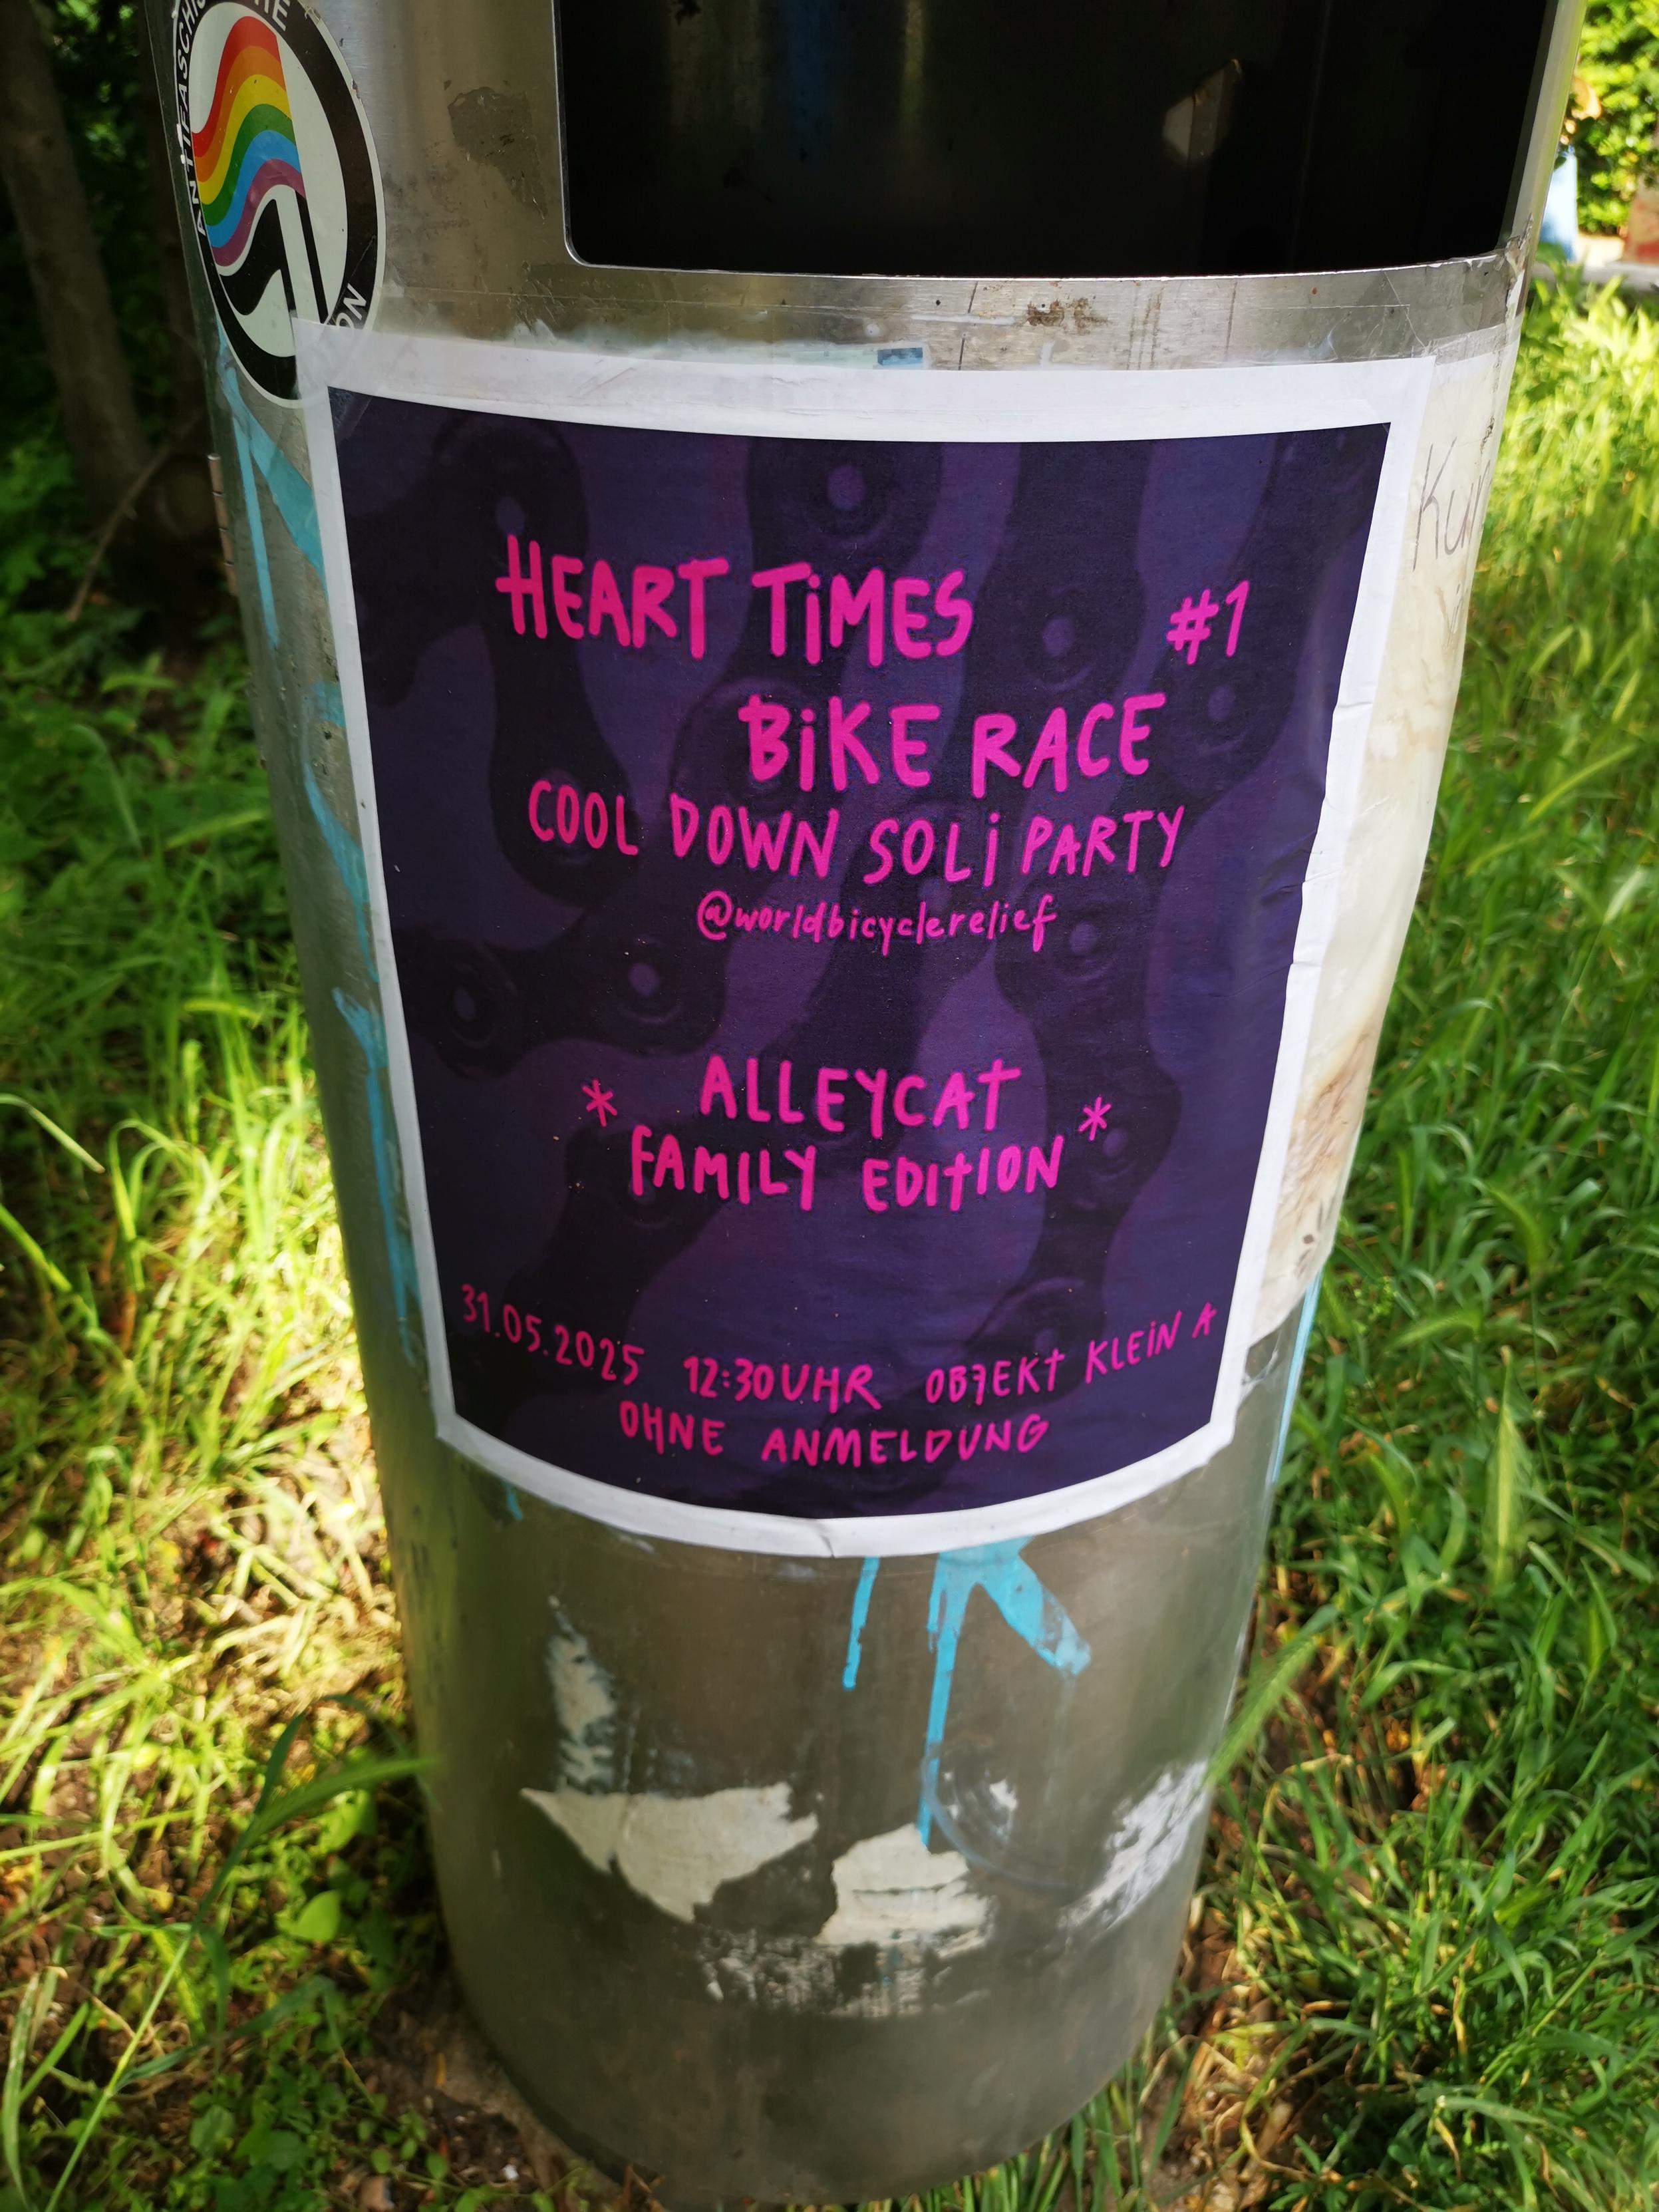 HEART TiMES #1
BiKE RACE
COOL DOWN SOLi PARTY
@worldbicyclerelief
* ALLEYCAT *
FAMILY EDITION
31.05.2025 12:30UHR OBJEKT KLEiN A
OHNE ANMELDUNG